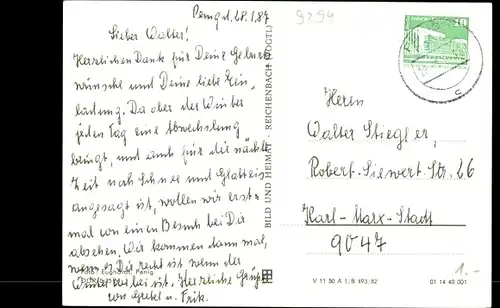 Penig d. 28.1.87
9294
Lieber Walter!
Herzlichen Dank für Deine Geburts
wünsche und Deine liebe Ein-
ladung. Da aber der Winter
jeden Tag eine Abwechslung
bringt, und auch für die nächste
Zeit noch Schnee und Glatteis
angesagt ist, wollen wir erst-
mal von einem Besuch bei Dir
absehen. Wir kommen dann mal,
wenn es Dir recht ist wenn der
Winter vorbei ist. Herzliche Grüße
von Gretel u. Fritz.
BILD UND HEIMAT · REICHENBACH (VOGTL)
10
Herrn
Walter Stiegler,
Robert-Siewert-Str. 26
Karl-Marx-Stadt
9047
V 11 50 A 1/B 493/82
01 14 40 001
1.-